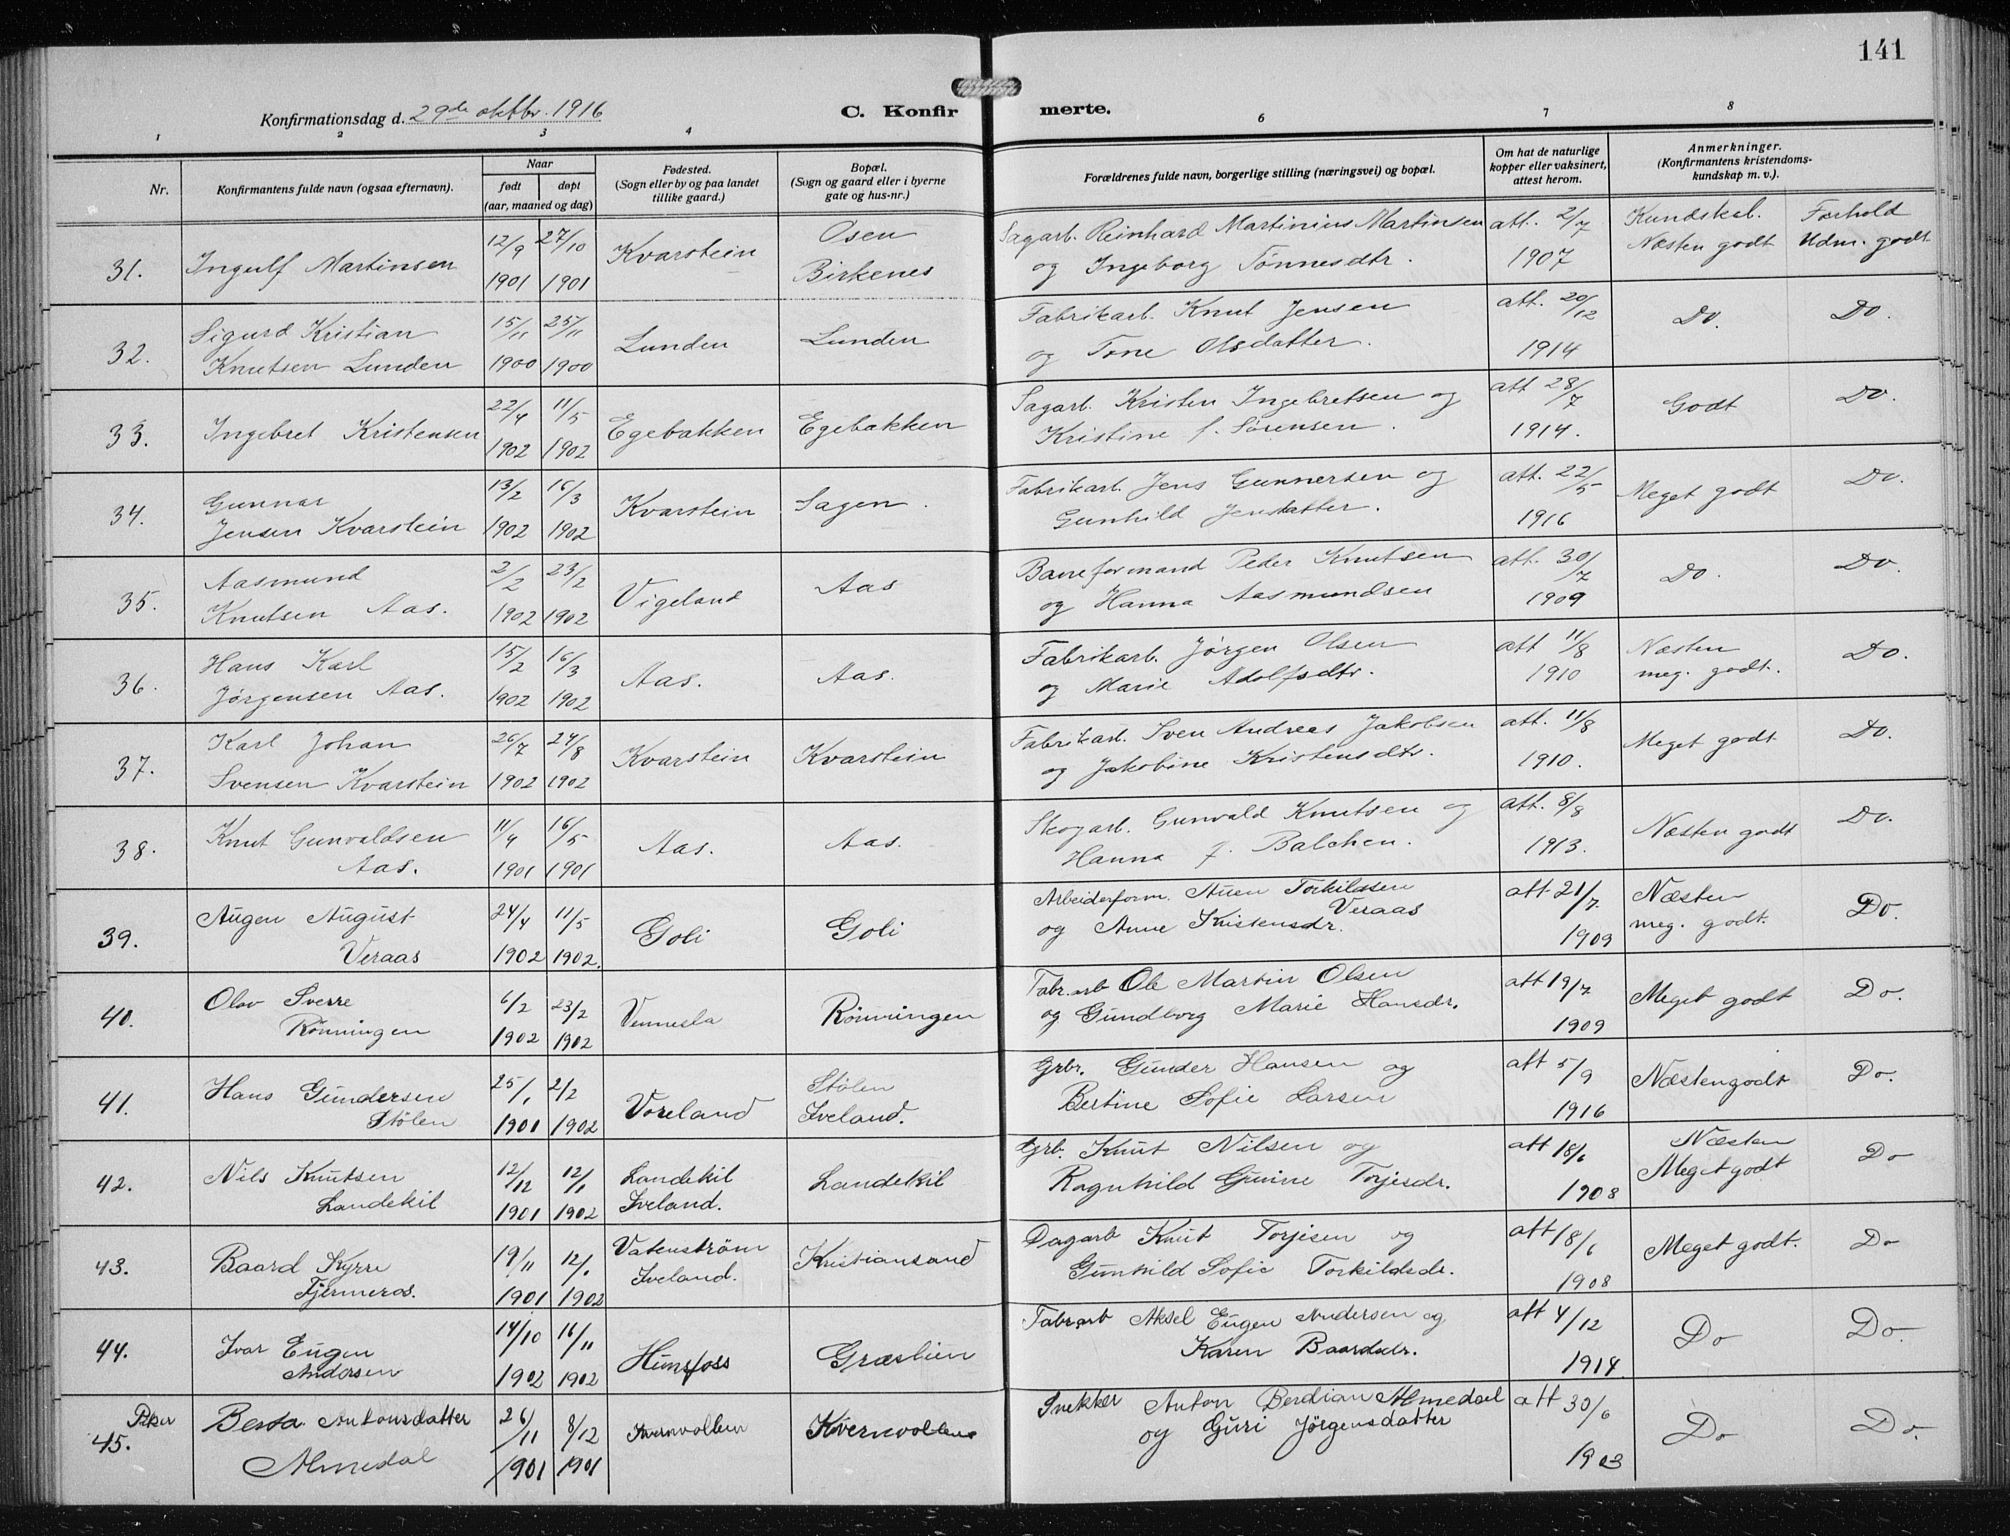 141
Konfirmationsdag d. 29de oktbr. 1916
C. Konfirmerte.
1 2 3 4 6 7 8
Nr.
Konfirmantens fulde navn (ogsaa efternavn).
Naar
født
døpt
(aar, maaned og dag)
Fødested.
(Sogn eller by og paa landet
tillike gaard.)
Bopæl.
(Sogn og gaard eller i byerne
gate og hus-nr.)
Forældrenes fulde navn, borgerlige stilling (næringsvei) og bopæl.
Om hat de naturlige
kopper eller vaksinert,
attest herom.
Anmerkninger.
(Konfirmantens kristendoms-
kundskap m. v.).
31. Ingulf Martinsen 12/9 1901 27/10 1901 Kvarstein Osen Birkenes
Sagarb. Reinhard Martinius Martinsen og Ingeborg Tønnesdtr. att. 2/7 1907 Kundskab. Næsten godt Forhold Udm. godt
32. Sigurd Kristian Knutsen Lunden 15/11 1900 25/11 1900 Lunden Lunden
Fabrikarb. Knut Jensen og Tone Olsdatter. att. 20/12 1914 Do. Do.
33. Ingebret Kristensen 22/4 1902 11/5 1902 Egebakken Egebakken
Sagarb. Kristen Ingebretsen og Kristine f. Sørensen. att 28/7 1914. Godt Do.
34. Gunnar Jensen Kvarstein 13/2 1902 16/3 1902 Kvarstein Sagen.
Fabrikarb. Jens Gunnersen og Gunhild Jensdatter. att. 22/5 1916 Meget godt Do.
35. Aasmund Knutsen Aas. 2/2 1902 23/2 1902 Vigeland Aas
Baneformand Peder Knutsen og Hanna Aasmundsen att. 30/7 1909 Do. Do.
36. Hans Karl Jørgensen Aas. 15/2 1902 16/3 1902 Aas. Aas.
Fabrikarb. Jørgen Olsen og Marie Adolfsdtr. att 11/8 1910 Næsten meg. godt. Do.
37. Karl Johan Svensen Kvarstein 26/7 1902 24/8 1902 Kvarstein Kvarstein
Fabrikarb. Sven Andreas Jakobsen og Jakobine Kristensdtr. att. 11/8 1910. Meget godt Do.
38. Knut Gunvaldsen Aas. 11/4 1901 16/5 1901 Aas. Aas.
Skogarb. Gunvald Knutsen og Hanna f. Balchen. att. 8/8 1913. Næsten godt Do.
39. Augen August Veraas 24/4 1902 11/5 1902. Goli Goli
Arbeiderform. Auen Torkildsen Veraas og Anne Kristensdr. att 21/7 1909 Næsten meg. godt. Do.
40. Olav Sverre Rønningen 6/2 1902 23/2 1902 Vennesla Rønningen
Fabr.arb Ole Martin Olsen og Gundborg Marie Hansdr. att 19/7 1909 Meget godt Do.
41. Hans Gundersen Stølen 25/1 1901 2/2 1902 Voreland Stølen Iveland.
Grbr. Gunder Hansen og Bertine Sofie Larsen att 5/9 1916 Næsten godt Do.
42. Nils Knutsen Landekil 12/12 1901 12/1 1902 Landekil Iveland. Landekil
Grb. Knut Nilsen og Ragnhild Gurine Torjesdr. att 18/6 1908 Næsten Meget godt Do
43. Baard Kyrre Tjermeros. 19/11 1901 12/1 1902 Vatenstrøm Iveland. Kristiansand
Dagarb Knut Torjesen og Gunhild Sofie Torkildsdr. att 18/6 1908 Meget godt. Do
44. Ivar Eugen Andersen 14/10 1902 16/11 1902 Hunsfoss Græslien
Fabr.arb Aksel Eugen Andersen og Karen Baardsdr. att 4/12 1914 Do Do.
Piker
45. Berta Antonsdatter Almedal 26/11 1901 8/12 1901 Kvernvollen Kvernvollene
Snekker Anton Berdian Almedal og Guri Jørgensdatter att 30/6 1903 Do Do.